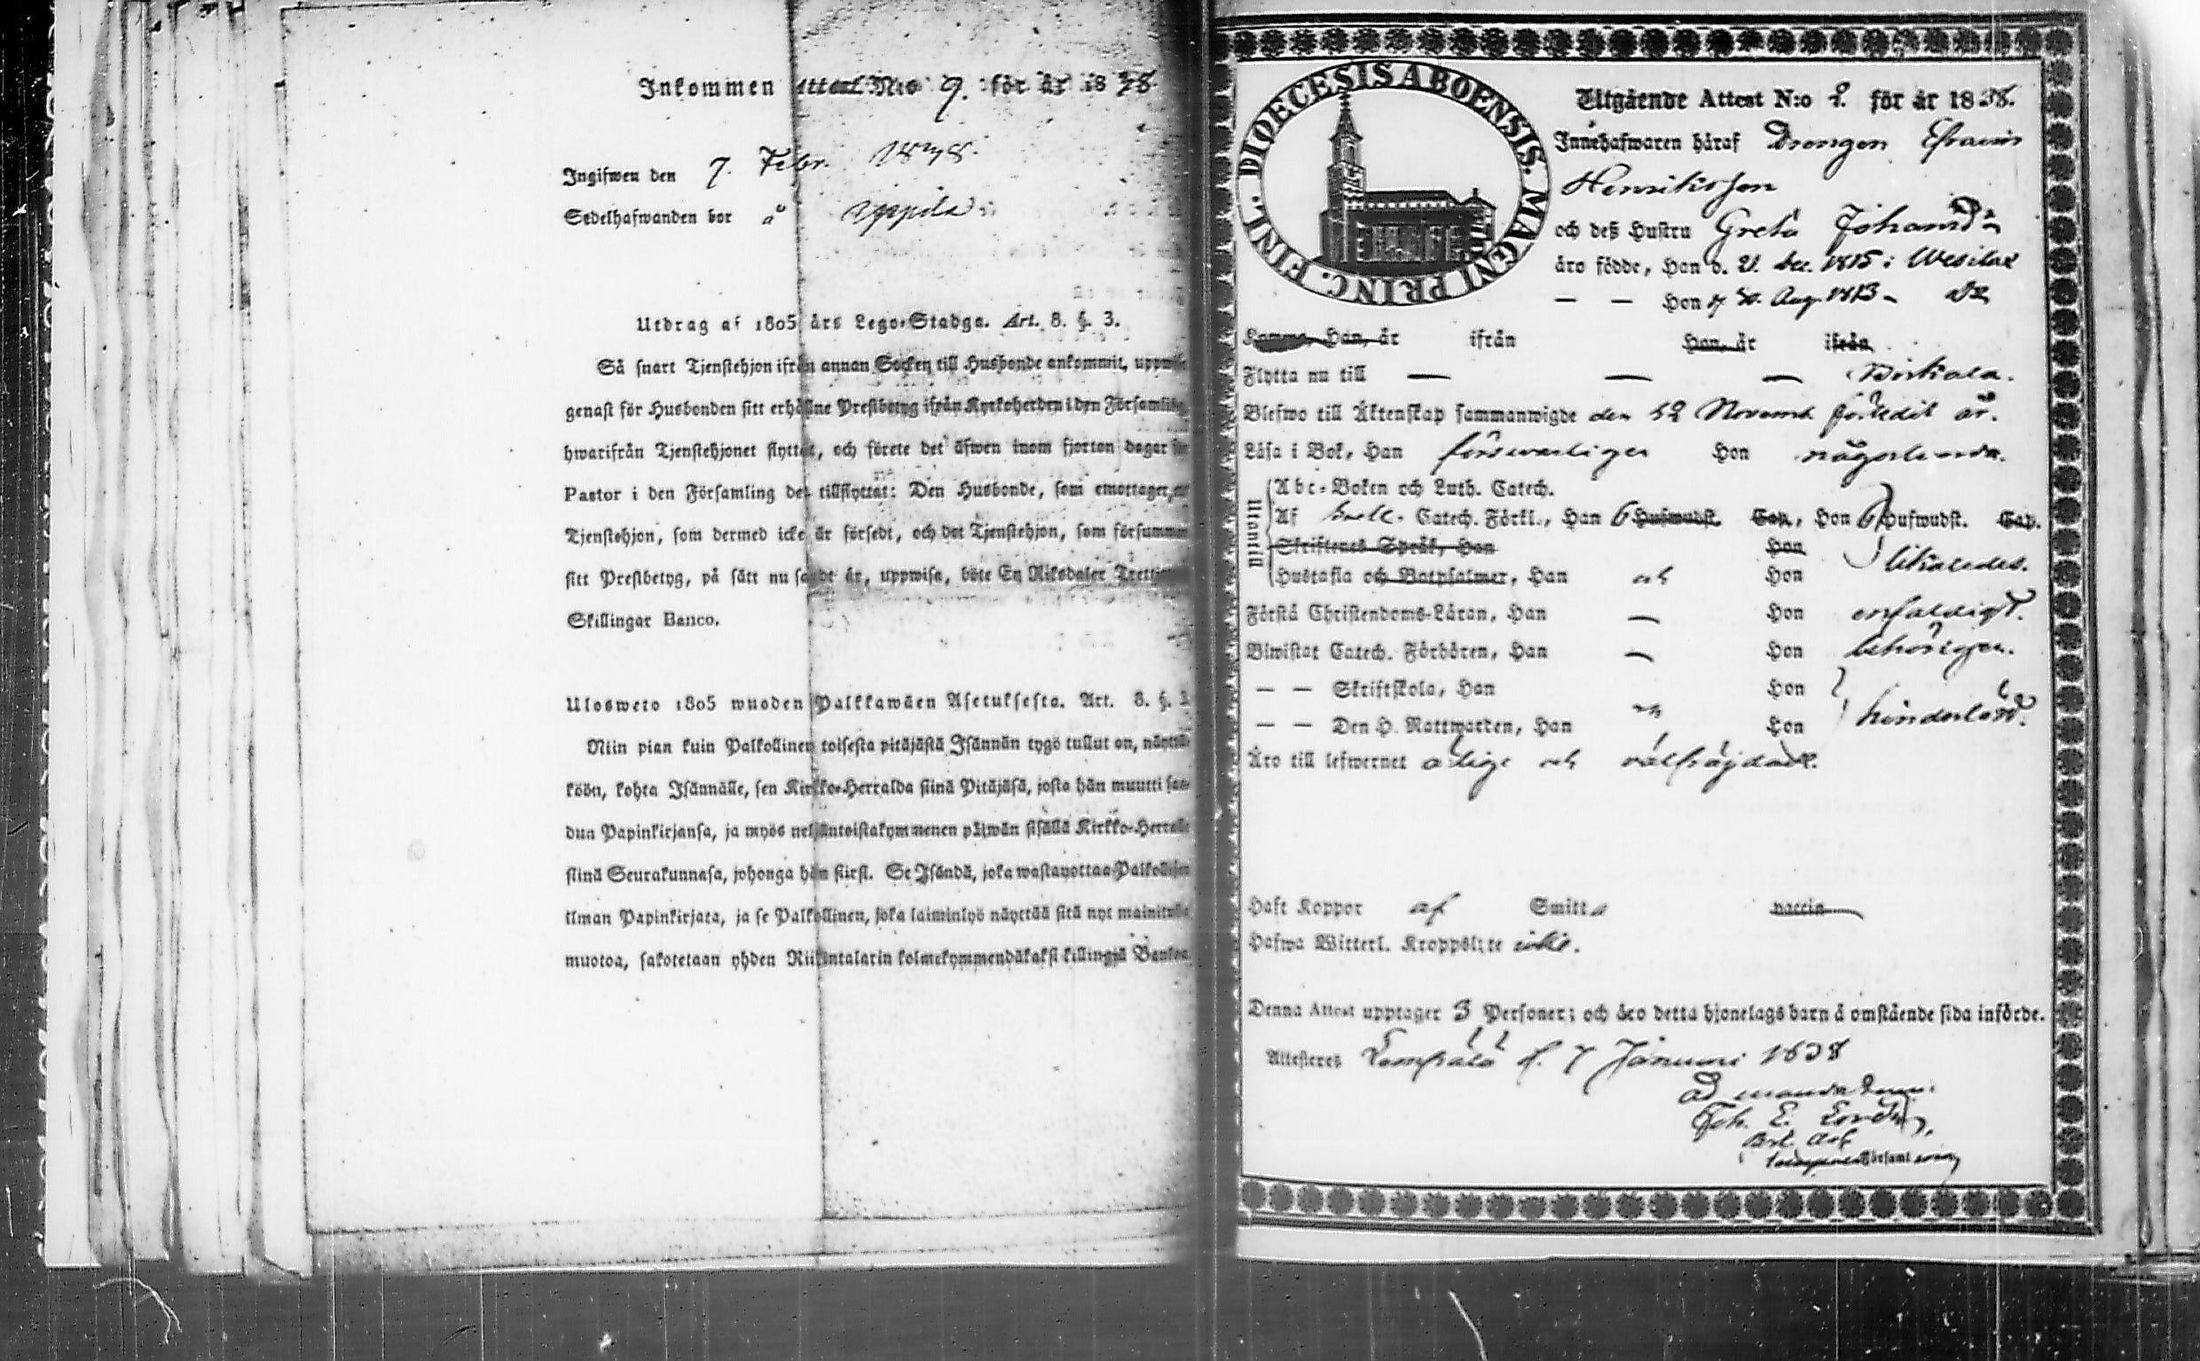 Inkommen attest N:o 9. för år 1838
Ingifwen den 7. Febr. 1838.
Sedelhafwanden bor å
Utdrag af 1805 års Lego-Stadga. Art. 8. §. 3.
Så snart Tjenstehjon ifrån annan Socken till Husbonde ankommit, uppwise
genast för Husbonden sitt erhållne Prestbetyg ifrån Kyrkoherden i den Församling
hwarifrån Tjenstehjonet flyttat, och förete det äfwen inom fjorton dagar för
Pastor i den Församling det tillflyttat: Den Husbonde, som emottager, ett
Tjenstehjon, som dermed icke är försedt, och det Tjenstehjon, som försummar
sitt Prestbetyg, på sätt nu sagdt är, uppwisa, böte En Riksdaler Trettio
Skillingar Banco.
Ulosweto 1805 wuoden Palkkawäen Asetuksesta. Art. 8. §. 3.
Niin pian kuin Palkollinen toisesta pitäjästä Isännän tygö tullut on, näyttä-
köön, kohta Isännälle, sen Kirkko-Herralda siinä Pitäjäsä, josta hän muutti saa-
dun Papinkirjansa, ja myös neljäntoistakymmenen päiwän sisällä Kirkko-Herralle
siinä Seurakunnasa, johonga hän siirsi. Se Isändä, joka wastanottaa Palkollisen
ilman Papinkirjata, ja se Palkollinen, joka laiminlyö näyttää sitä nyt mainitulla
muotoa, sakotetaan yhden Riikintalarin kolmekymmendäkaksi killingiä Bankoa
DIOECESIS ABOENSIS. MAGNI PRINC. FINL.
Utgående Attest N:o 2. för år 1838.
Innehafwaren häraf Drengen Efraim
Henriksson
och deß Hustru Greta Johansdr
äro födde, Han d. 21. Dec. 1815 i Wesilax
— — Hon d. 30. Aug. 1813 — dr
Komme, Han, år ifrån Hon, år ifrån
Flytta nu till — — — Birkala.
Blefwo till Äktenskap sammanwigde den 12 Novemb. förledit år.
Läsa i Bok, Han försvarligen Hon någorlunda.
Utantill
Abc-Boken och Luth. Catech.
Af Catech. Förkl., Han 6 Hufwudst. Cap., Hon 6 Hufwudst. Cap.
Skriftenes Språk, Han Hon
likaledes.
Hustafla och Botpsalmer, Han och Hon
Första Christendoms-Läran, Han — Hon enfaldigt.
Biwistat Catech. Förhören, Han — Hon behörigen.
— — Skriftskola, Han Hon
— — Den H. Nattwarden, Han och Hon hinderlöst.
Äro till lefwernet ärlige och välfrägdade.
Haft Koppor af Smitta vaccin
Hafwa Witterl. Kroppslyte icke.
Denna Attest upptager 3 Personer; och äro detta hjonelags barn å omstående sida införde.
Attesteres Lempälä d. 7 Januari 1838
Ad mandatum:
Joh. E.